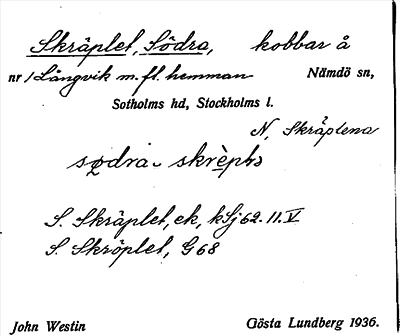 Skräplet, Södra, kobbar å
nr 1 Långvik m. fl. hemman Nämdö sn,
Sotholms hd, Stockholms l.
N, Skräplena
S. Skräplet, ek, kSj 62. 11. V
S. Skröplet, G 68
John Westin Gösta Lundberg 1936.